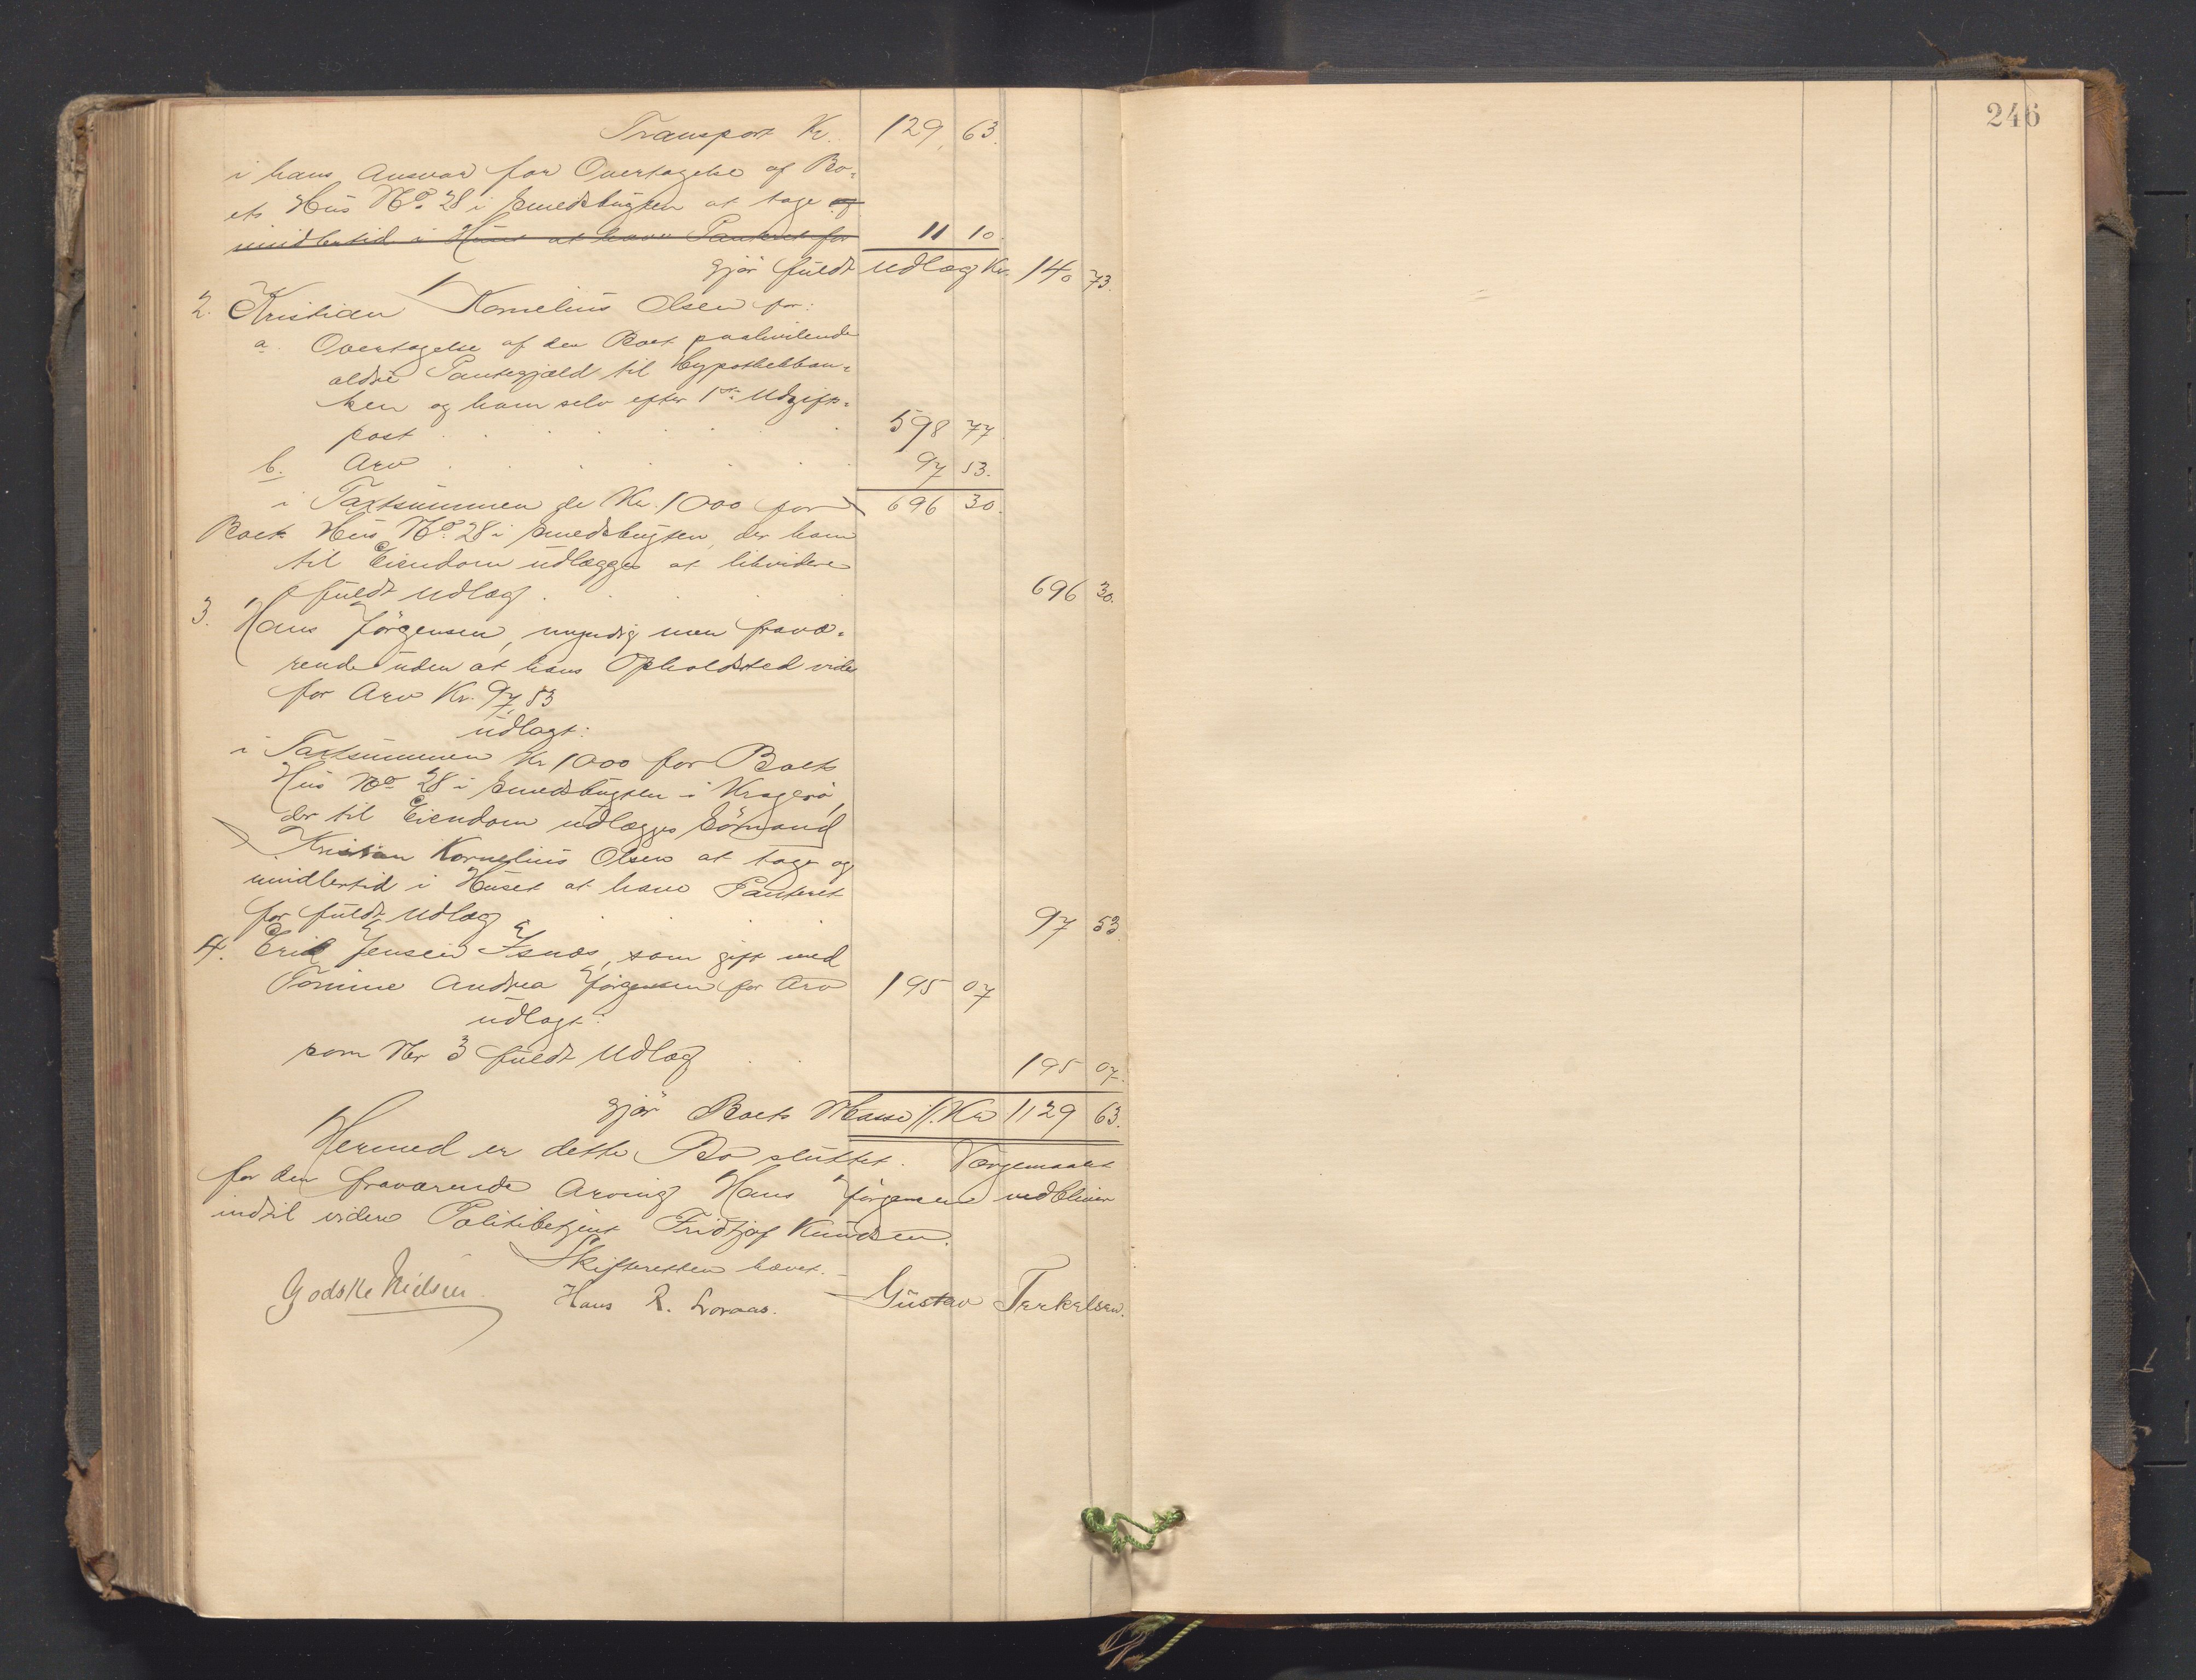 Transport Kr. 129, 63.
i hans Ansvar for Overtagelse af Bo-
ets Hus No 28 i Smedsbugten at tage og
imidlertid i Huset at have Panteret for 11 10.
gjør fuldt Udlæg Kr. 140 73.
2. Kristian Kornelius Olsen for:
a. Overtagelse af den Boet paahvilende
ældre Pantegjæld til Hypothekban-
ken og ham selv efter 1ste Udgifts-
post 598 77
b. Arv 97 53.
i Taxtsummen de Kr. 1000 for 696 30.
Boets Hus No 28 i Smedsbugten, der ham
til Eiendom udlægges at likvidere
fuldt Udlæg 696 30.
3. Hans Jörgensen, myndig men fravæ-
rende uden at hans Opholdsted vides
for Arv Kr. 97,53
udlagt:
i Taxtsummen Kr 1000 for Boets
Hus No 28 i Smedsbugten i Kragerö,
der til Eiendom udlægges Sömand
Kristian Kornelius Olsen at tage og
imidlertid i Huset at have Panteret
for fuldt Udlæg 97 53.
4. Erik Jensen Isnæs, som gift med
Tomine Andrea Jörgensen for Arv 195 07
udlagt:
som Nr 3 fuldt Udlæg 195 07.
gjør Boets Masse //. Kr 1129 63.
Hermed er dette Bo sluttet. Værgemaalet
for den fraværende Arving Hans Jörgensen vedbliver
indtil videre Politibetjent Fridtjof Knudsen.
Skifteretten hævet.
Godske Nielsen. Hans R. Lovaas. Gustav Terkelsen.
246